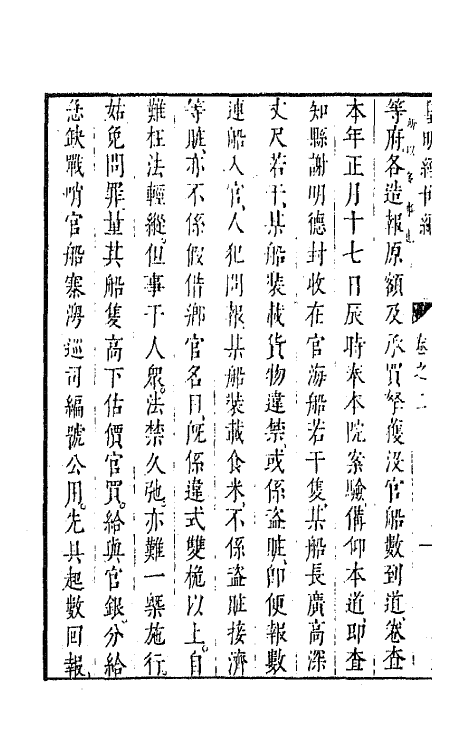 皇明經世編
卷之二
等府各造報原額及承買拏獲沒官船數到道卷查
本年正月十七日辰時奉本院案驗備仰本道即查
知縣謝明德封收在官海船若干隻某船長廣高深
丈尺若干某船裝載貨物違禁或係盜贓即便報數
連船入官人犯問報某船裝載食米不係盜贓接濟
等贓亦不係假借鄉官名目旣係違式雙桅以上自
難枉法輕縱但事干人衆法禁久弛亦難一槩施行
姑免問罪量其船隻高下估價官買給與官銀分給
急缺戰哨官船寨灣巡司編號公用先具起數回報